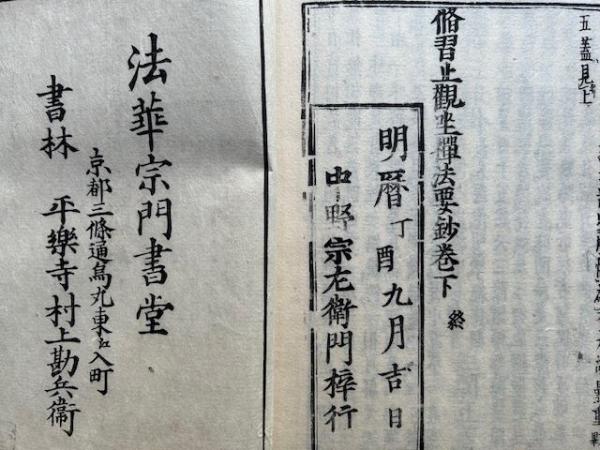 五蓋見上
脩習止觀坐禪法要鈔卷下 終
明曆丁酉九月吉日
中野宗左衛門梓行
法華宗門書堂
京都三條通烏丸東江入町
書林 平樂寺村上勘兵衞